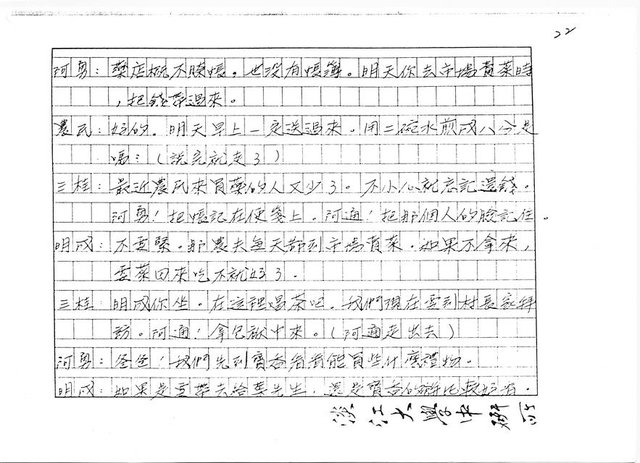 22
阿勇：藥店概不賒帳。也沒有帳簿。明天你去市場賣菜時
，把錢帶過來。
農民：好的。明天早上一定送過來。用二碗水煎成八分是
嗎？（說完就走了）
三桂：最近農民來買藥的人又少了。不小心就忘記還錢。
阿勇！把帳記在便箋上。阿通！把那個人的臉記住。
明成：不要緊。那農夫每天都到市場賣菜。如果不拿來，
要菜回來吃不就好了。
三桂：明成你坐。在這裡喝茶吧。我們現在要到村長家拜
訪。阿通！拿包獻中來。（阿通走出去）
阿勇：爸爸！我們先到寶香看看能買些什麼禮物。
明成：如果是要帶去給葉先生，還是寶香的 比較好。
淡江大學中研所